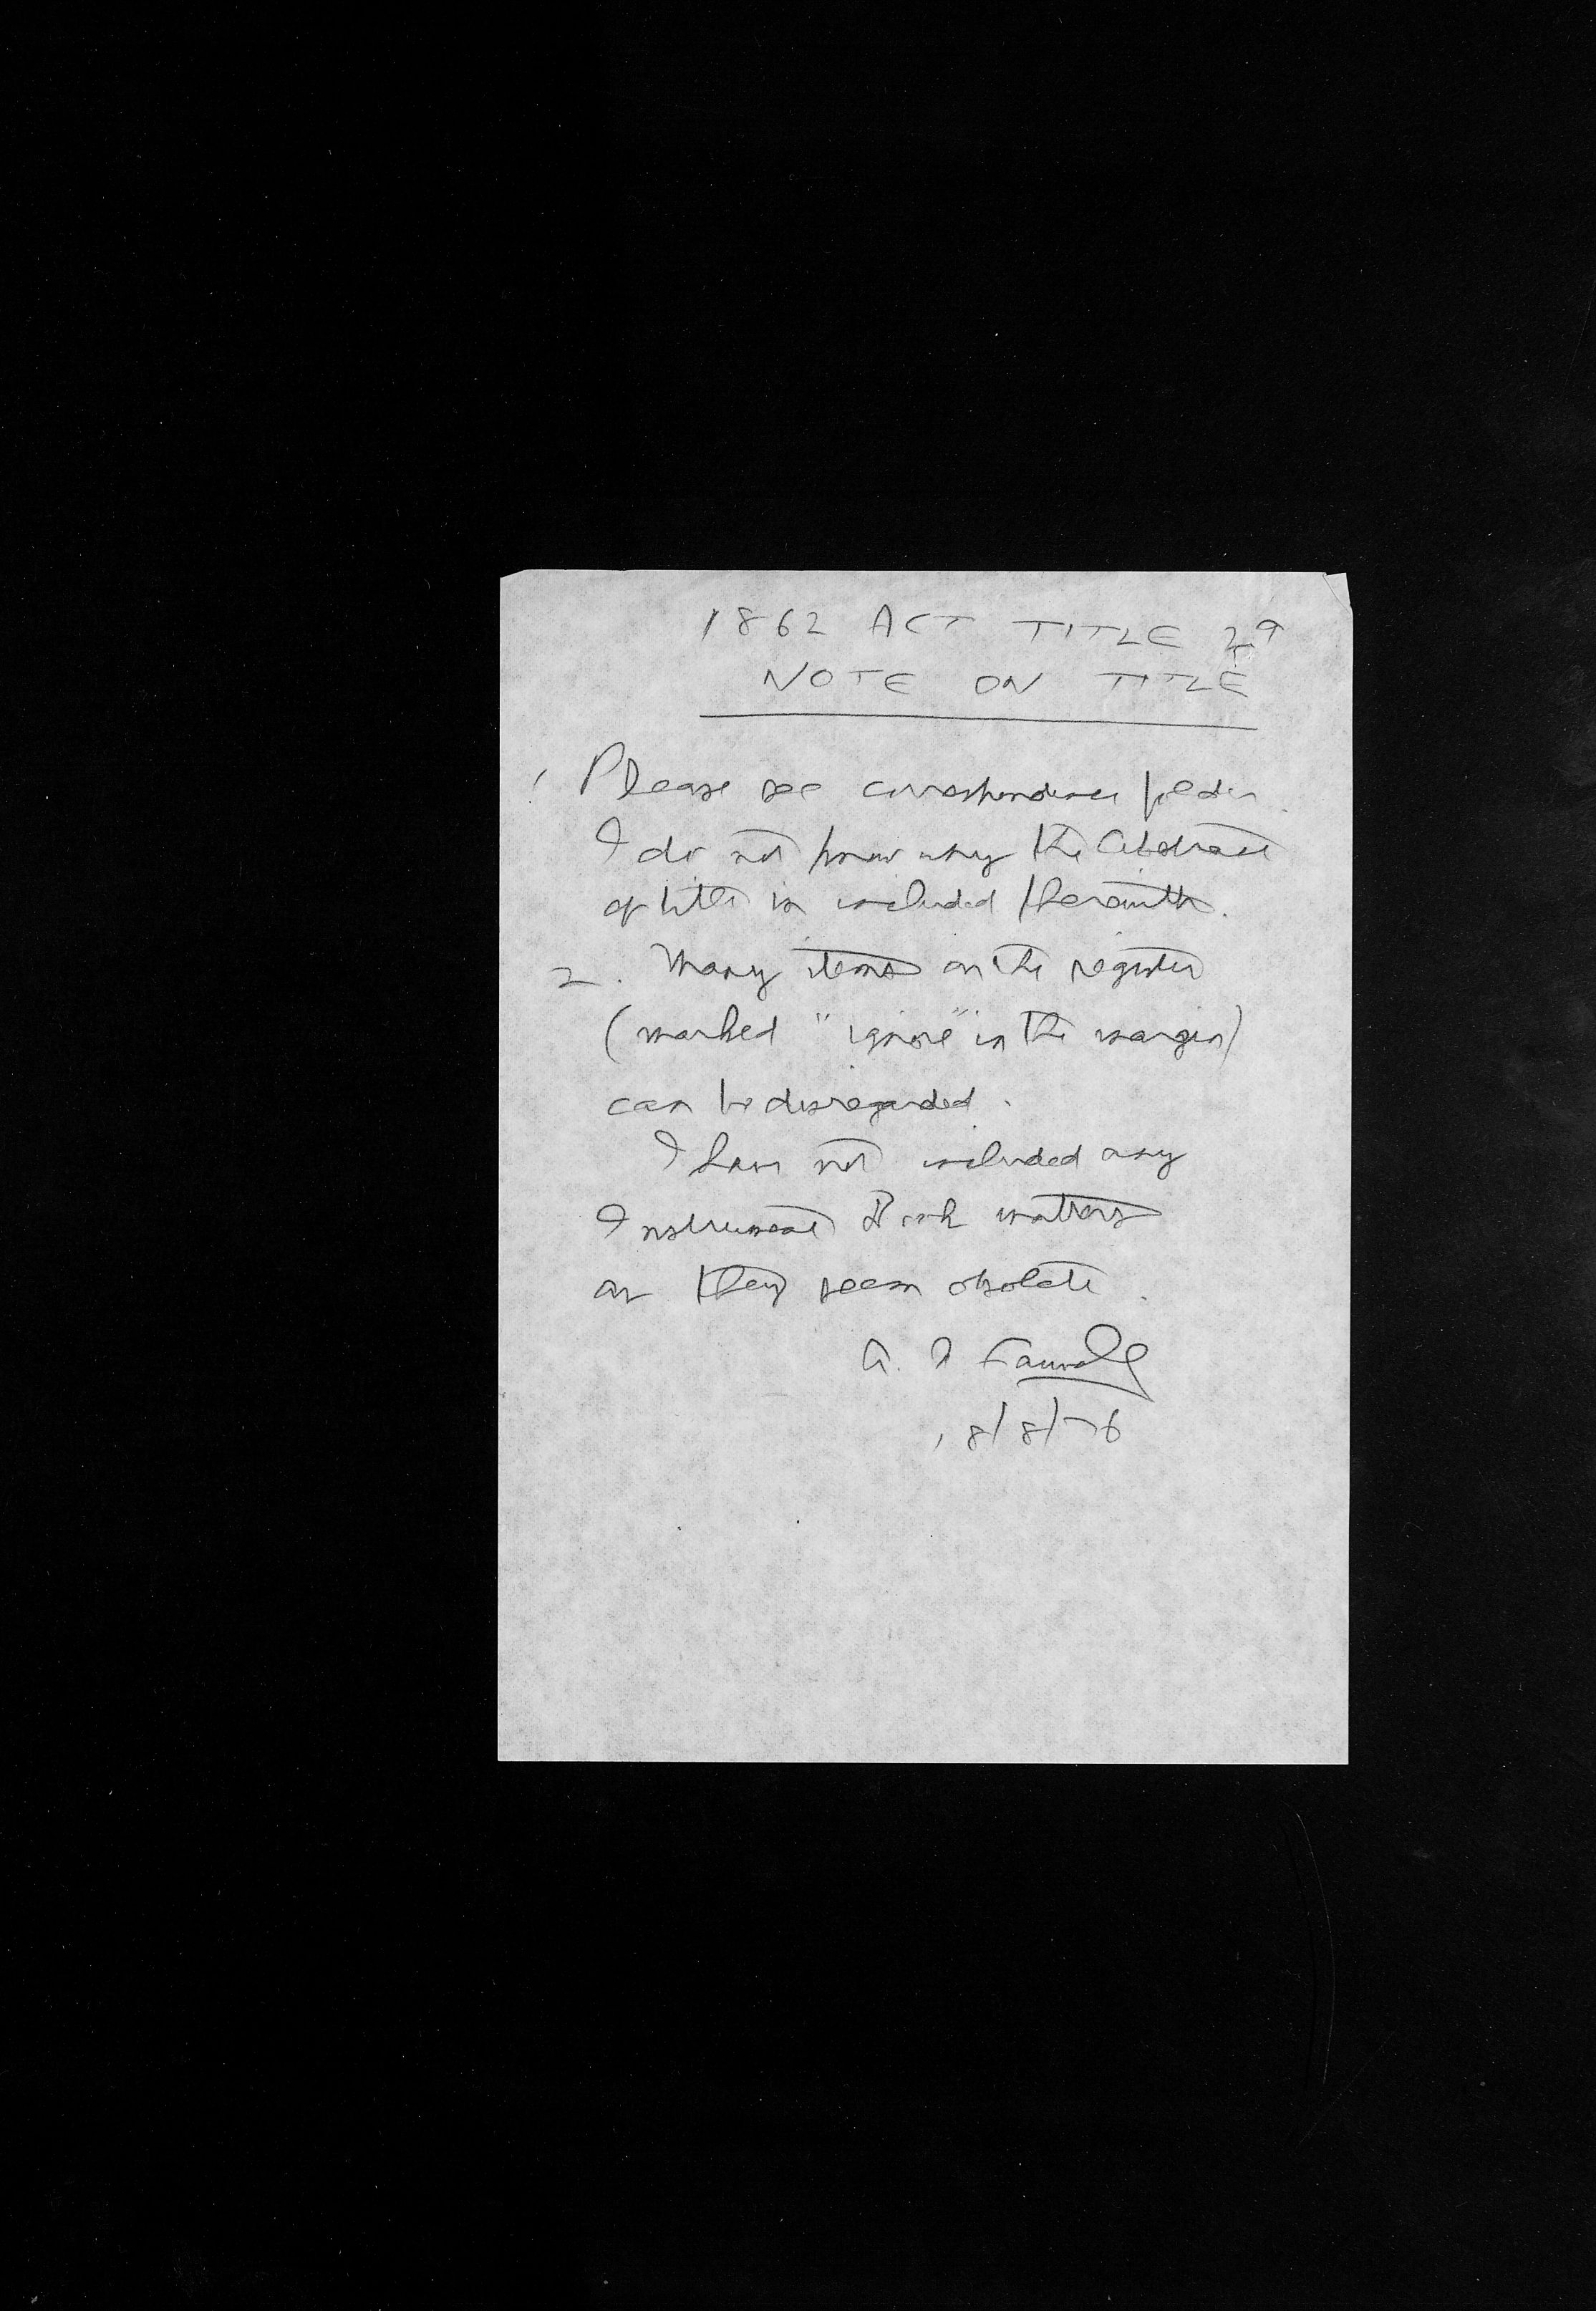 1862 ACT TITLE 29
NOTE ON TITLE
1 Please see correspondence folder.
I do not know why the Abstract
of title is included therewith.
2. Many items on the register
(marked "ignore" in the margin)
can be disregarded.
I have not included any
Instrument of such matters
as they seem obsolete.
A.
18/8/76